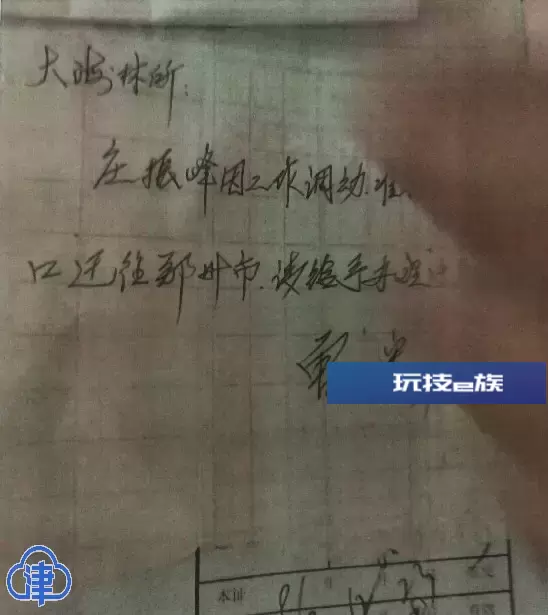 大海林所:
庄振峰因工作调动.准
口迁往郑州市.请给予办理
玩技e族
本证
津